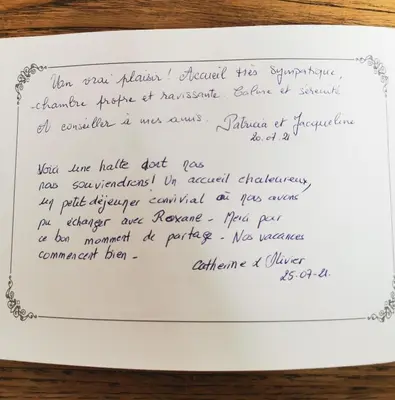 Un vrai plaisir ! Accueil très sympatique,
chambre propre et ravissante. Calme et sérénité
A conseiller à mes amis. Patricia et Jacqueline
20.07.21
Voici une halte dont nous
nous souviendrons ! Un accueil chaleureux,
un petit déjeuner convivial où nous avons
pu échanger avec Roxane - Merci pour
ce bon momment de partage - Nos vacances
commencent bien -
Catherine & Olivier
25-07-21.